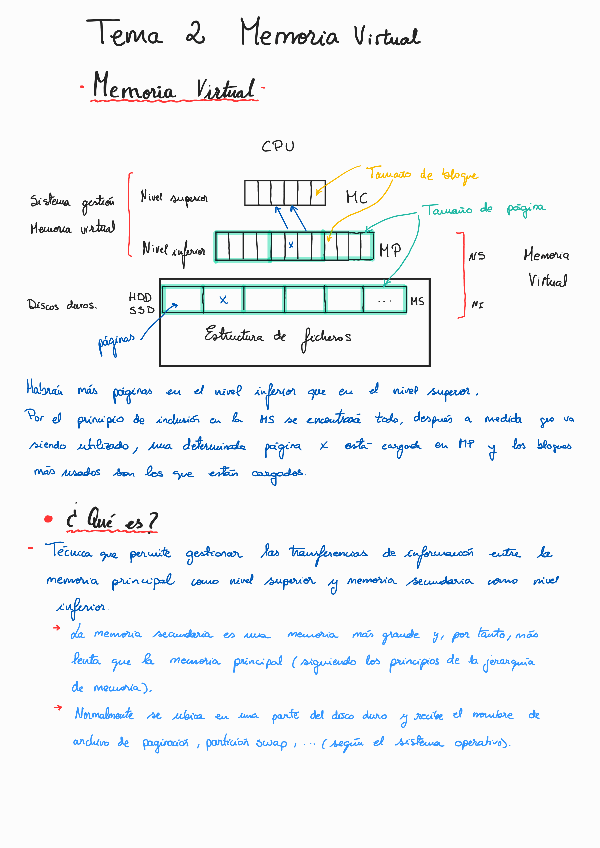 Tema 2 Memoria Virtual
- Memoria Virtual -
CPU
Tamaño de bloque
Sistema gestión
Memoria virtual
Nivel superior
MC
Tamaño de página
Nivel inferior
x
MP
NS
Memoria
Virtual
Discos duros.
HDD
SSD
x
...
MS
NI
páginas
Estructura de ficheros
Habrán más páginas en el nivel inferior que en el nivel superior.
Por el principio de inclusión en la MS se encontrará todo, después a medida que va
siendo utilizado, una determinada página x está cargada en MP y los bloques
más usados son los que están cargados.
• ¿Qué es?
- Técnica que permite gestionar las transferencias de información entre la
memoria principal como nivel superior y memoria secundaria como nivel
inferior.
→ La memoria secundaria es una memoria más grande y, por tanto, más
lenta que la memoria principal (siguiendo los principios de la jerarquía
de memoria).
→ Normalmente se ubica en una parte del disco duro y recibe el nombre de
archivo de paginación, partición swap, ... (según el sistema operativo).